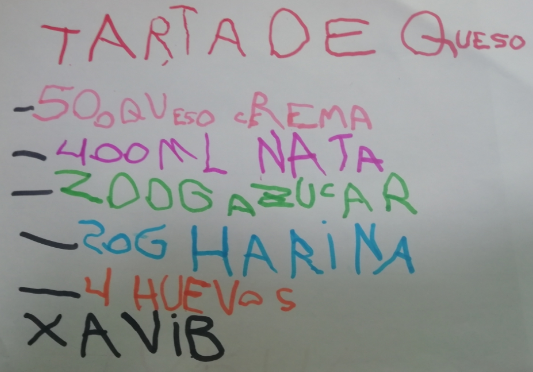 TARTA DE QUESO
- 500 QUESO CREMA
- 400ML NATA
- 200G AZUCAR
- 20G HARINA
- 4 HUEVOS
XAVIB